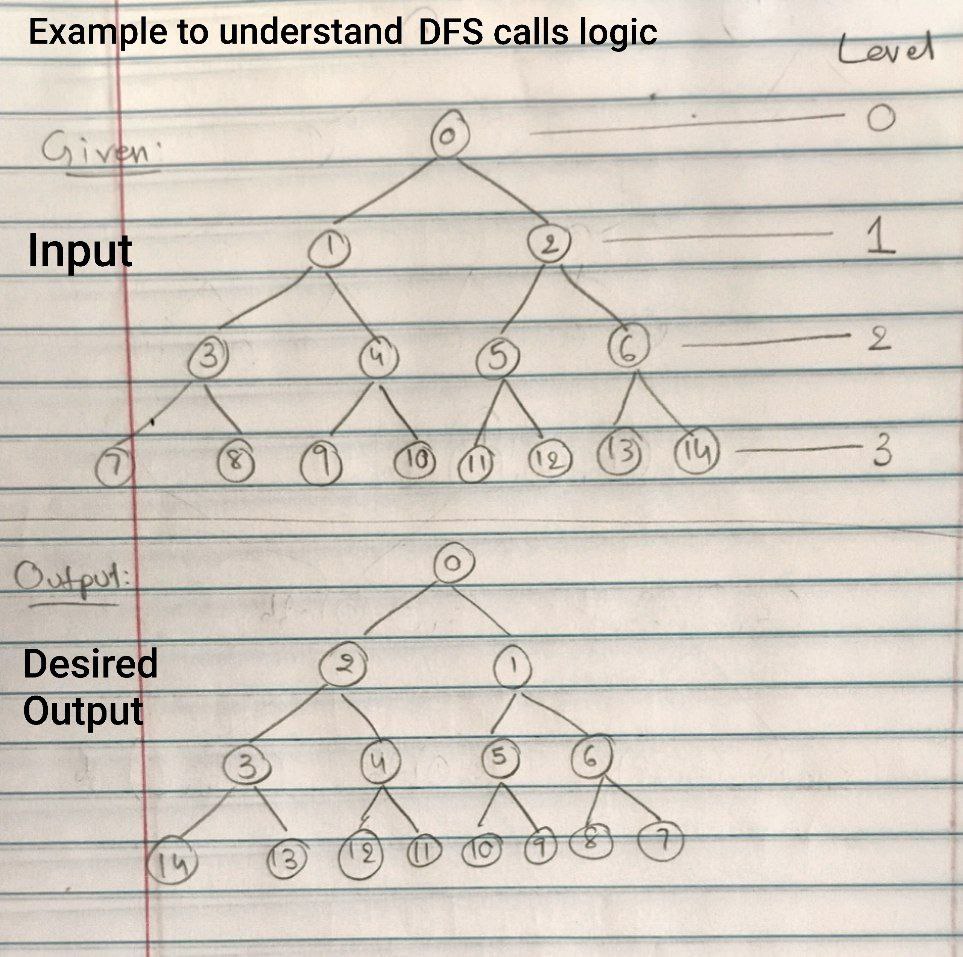 Example to understand DFS calls logic
Level
Given:
0 0
Input
1 2 1
3 4 5 6 2
7 8 9 10 11 12 13 14 3
Output:
0
Desired
2 1
Output
3 4 5 6
14 13 12 11 10 9 8 7